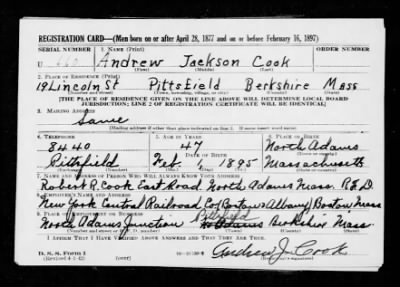 REGISTRATION CARD—(Men born on or after April 28, 1877 and on or before February 16, 1897)
SERIAL NUMBER 1. NAME (Print) ORDER NUMBER
U Andrew Jackson Cook
(First) (Middle) (Last)
2. PLACE OF RESIDENCE (Print)
19 Lincoln St Pittsfield Berkshire Mass
(Number and street) (Town, township, village, or city) (County) (State)
[THE PLACE OF RESIDENCE GIVEN ON THE LINE ABOVE WILL DETERMINE LOCAL BOARD
JURISDICTION; LINE 2 OF REGISTRATION CERTIFICATE WILL BE IDENTICAL]
3. MAILING ADDRESS
Same
(Mailing address if other than place indicated on line 2. If same insert word same)
4. TELEPHONE 5. AGE IN YEARS 6. PLACE OF BIRTH
8440 47 North Adams
DATE OF BIRTH
Pittsfield Feb 1, 1895 Massachusetts
7. NAME AND ADDRESS OF PERSON WHO WILL ALWAYS KNOW YOUR ADDRESS
Robert R. Cook East Road North Adams Mass. R.F.D.
8. EMPLOYER'S NAME AND ADDRESS
New York Central Railroad Co (Boston & Albany) Boston Mass
9. PLACE OF EMPLOYMENT OR BUSINESS
Pittsfield
North Adams Junction Berkshire Mass
(Number and street or R. F. D. number) (Town) (County) (State)
I AFFIRM THAT I HAVE VERIFIED ABOVE ANSWERS AND THAT THEY ARE TRUE.
D. S. S. Form 1
(Revised 4-1-42) (over)
Andrew J. Cook